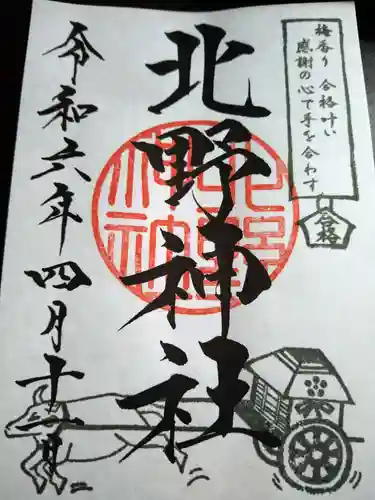 梅香り 合格叶い
感謝の心で手を合わす
合格
北野神社
北野神社
令和六年四月十一日